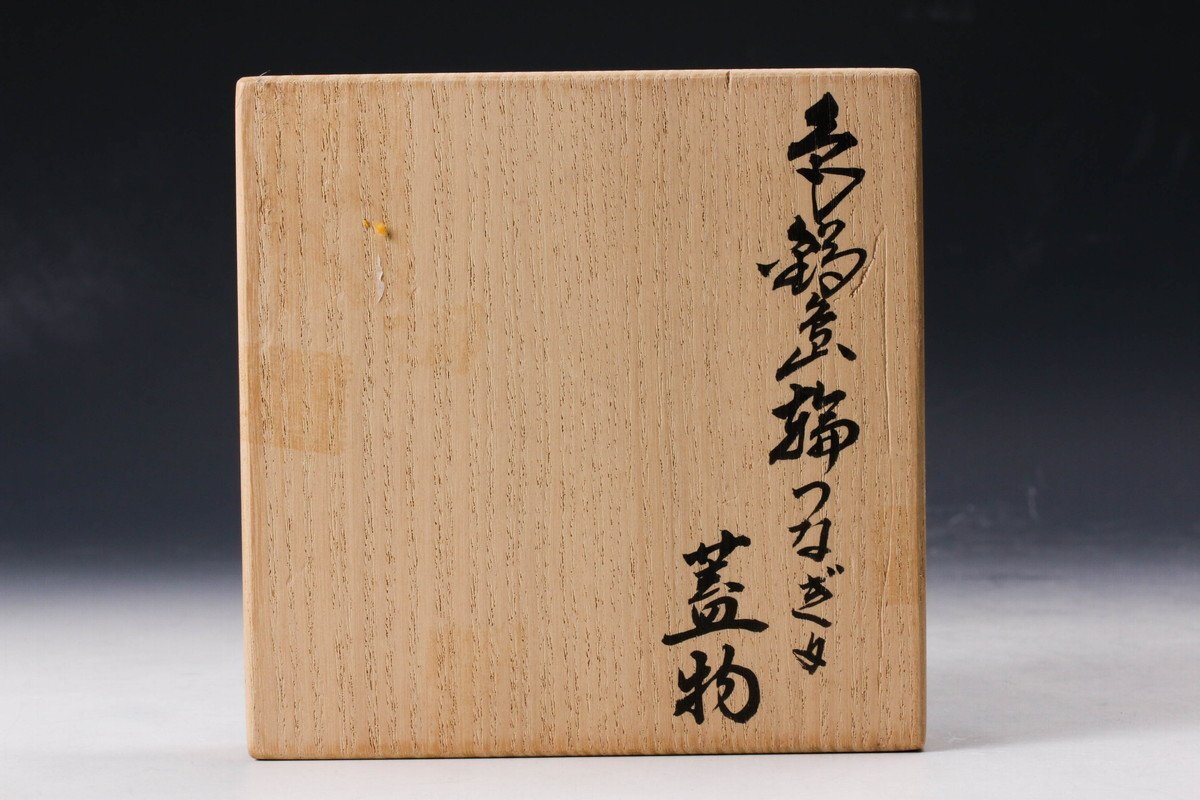 鍋島輪つなぎ文
蓋物